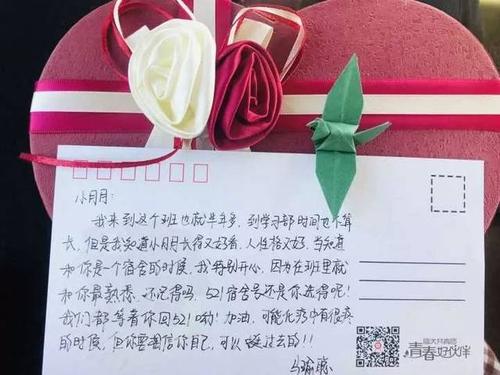 小月月：
我来到这个班也就半年多，到学习部时间也不算
长，但是我知道小月月长得又好看，人性格又好，当知道
和你是一个宿舍的时候，我特别开心，因为在班里就
和你最熟悉，还记得吗，521宿舍号还是你选得呢！
我们都等着你回521呦！加油，可能化疗中有很疼
的时候，但你要相信你自己，可以挺过去的！！
青春好伙伴